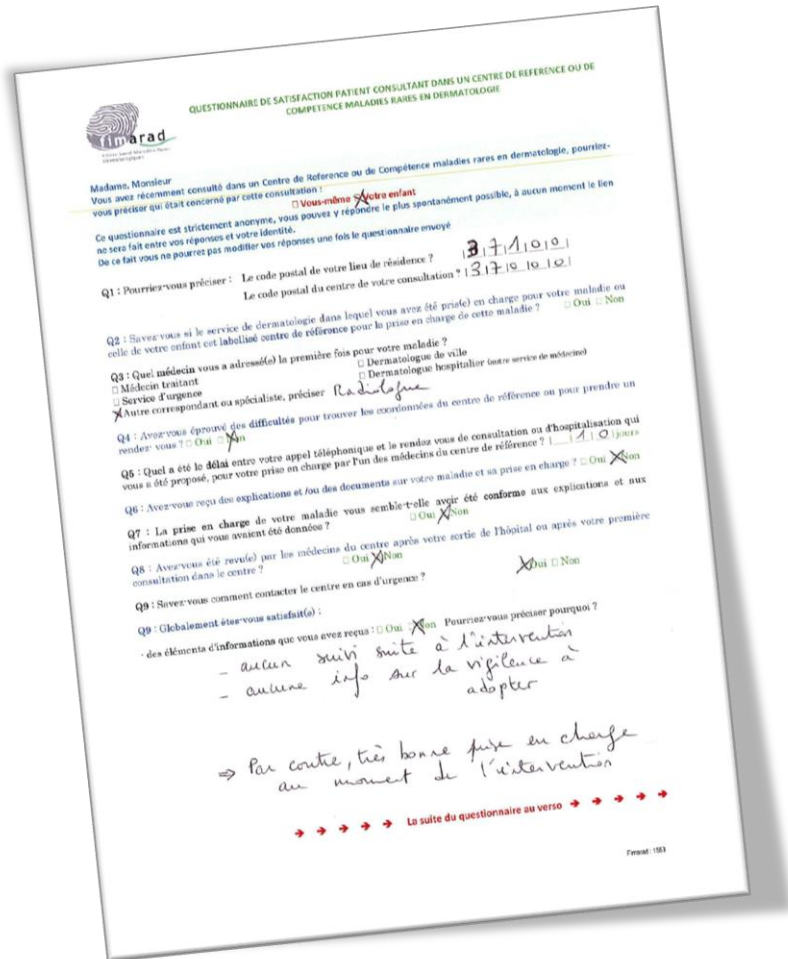 QUESTIONNAIRE DE SATISFACTION PATIENT CONSULTANT DANS UN CENTRE DE REFERENCE OU DE
COMPETENCE MALADIES RARES EN DERMATOLOGIE
fimarad
Madame, Monsieur
Vous avez récemment consulté dans un Centre de Reference ou de Compétence maladies rares en dermatologie, pourriez-
vous préciser qui était concerné par cette consultation :
□ Vous-même Votre enfant
Ce questionnaire est strictement anonyme, vous pouvez y répondre le plus spontanément possible, à aucun moment le lien
ne sera fait entre vos réponses et votre identité.
De ce fait vous ne pourrez pas modifier vos réponses une fois le questionnaire envoyé
Q1 : Pourriez-vous préciser : Le code postal de votre lieu de résidence ? |3|7|1|0|0|
Le code postal du centre de votre consultation ? |3|7|0|0|0|
Q2 : Savez-vous si le service de dermatologie dans lequel vous avez été pris(e) en charge pour votre maladie ou
celle de votre enfant est labellisé centre de référence pour la prise en charge de cette maladie ? □ Oui □ Non
Q3 : Quel médecin vous a adressé(e) la première fois pour votre maladie ?
□ Médecin traitant □ Dermatologue de ville
□ Service d'urgence □ Dermatologue hospitalier (autre service de médecine)
X Autre correspondant ou spécialiste, préciser Radiologue
Q4 : Avez-vous éprouvé des difficultés pour trouver les coordonnées du centre de référence ou pour prendre un
rendez-vous ? □ Oui X Non
Q5 : Quel a été le délai entre votre appel téléphonique et le rendez vous de consultation ou d'hospitalisation qui
vous a été proposé, pour votre prise en charge par l'un des médecins du centre de référence ? |_|1|0| jours
Q6 : Avez-vous reçu des explications et /ou des documents sur votre maladie et sa prise en charge ? □ Oui X Non
Q7 : La prise en charge de votre maladie vous semble-t-elle avoir été conforme aux explications et aux
informations qui vous avaient été données ? □ Oui X Non
Q8 : Avez-vous été revu(e) par les médecins du centre après votre sortie de l'hôpital ou après votre première
consultation dans le centre ? □ Oui X Non
Q9 : Savez-vous comment contacter le centre en cas d'urgence ? X Oui □ Non
Q9 : Globalement êtes-vous satisfait(e) :
- des éléments d'informations que vous avez reçus : □ Oui X Non Pourriez-vous préciser pourquoi ?
- aucun suivi suite à l'intervention
- aucune info sur la vigilence à
adopter
⇒ Par contre, très bonne prise en charge
au moment de l'intervention
➔ ➔ ➔ ➔ ➔ La suite du questionnaire au verso ➔ ➔ ➔ ➔ ➔